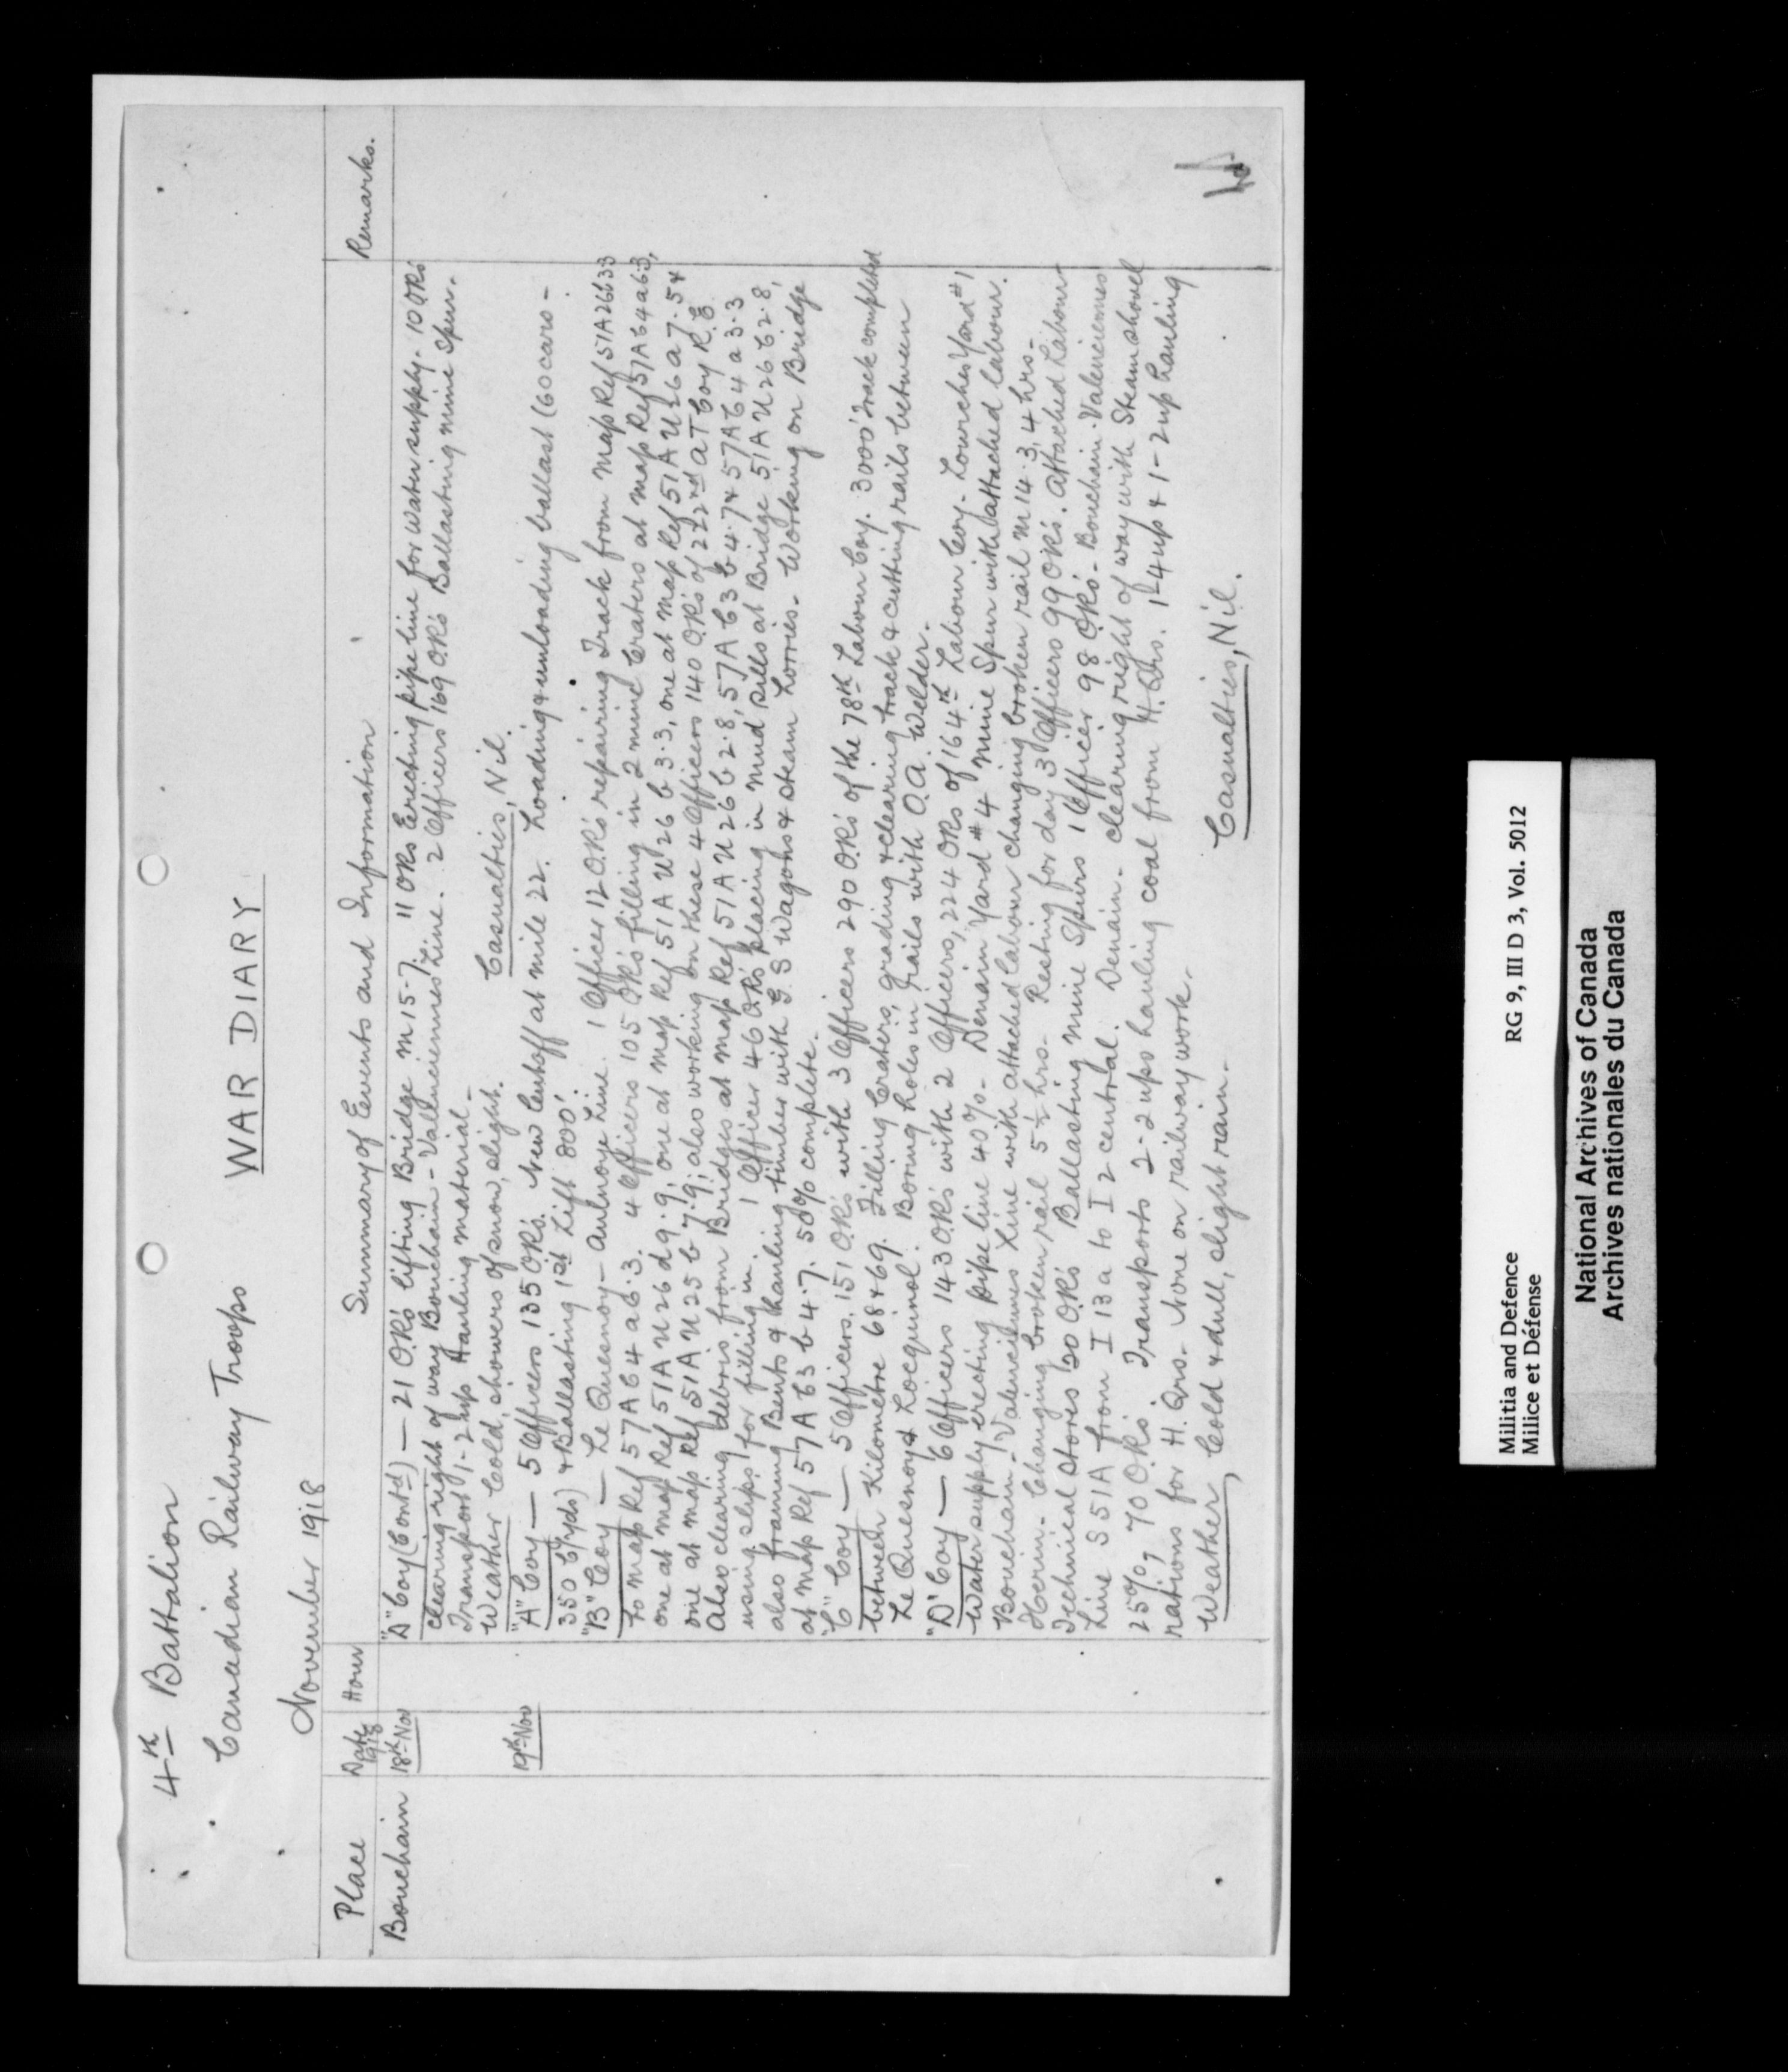 4th Battalion
Canadian Railway Troops WAR DIARY
November 1918
Place Date 1918 Hour Summary of Events and Information Remarks.
Bouchain 18th Nov "D" Coy (Cont'd) — 21 O.R's lifting Bridge M 15-7. 11 ORs Erecting pipe line for water supply. 10 O.R's
clearing right of way Bouchain - Valenciennes Line. 2 Officers 169 O.R's Ballasting mine Spur.
Transport 1-2 up Hauling material -
Weather Cold, showers of snow, slight. Casualties, Nil.
19th Nov "A" Coy — 5 Officers 135 O.R's. New Cutoff at mile 22. Loading & unloading ballast (60 cars -
350 c/yds) & Ballasting 1st Lift 800'.
"B" Coy — Le Quesnoy - Aulnoye Line. 1 Officer 12 O.R's repairing Track from Map Ref 51A 26b33
to map Ref 57A B4 a 6.3. 4 Officers 105 O.R's filling in 2 mine Craters at map Ref 57A B4 a 6.3,
one at map Ref 51A U 26 d 9.9, one at map Ref 51A U 26 b 3.3, one at map Ref 51A U 26 a 7.54
one at map Ref 51A U 25 b 7.9; also working on these 4 Officers 140 O.R's of 222nd A T Coy R.E.
Also clearing debris from Bridges at map Ref 51A U 26 b 2.8, 57A B3 b 4.7 & 57A B4 a 3.3
using slips for filling in. 1 Officer 46 O.R's placing in mud sills at Bridge 51A U 26 b 2.8,
also framing Bents & hauling timber with G.S Wagons & steam Lorries. Working on Bridge
at map Ref 57A B3 b 4.7. 50% complete.
"C" Coy — 5 Officers. 151 O.R's with 3 Officers 290 O.R's of the 78th Labour Coy. 3000' Track completed
between Kilometre 68 & 69. Filling Craters, grading & clearing track & cutting rails between
Le Quesnoy & Locquinol. Boring holes in rails with O.A. Welder.
"D" Coy — 6 Officers 143 O.R's with 2 Officers, 224 ORs of 164th Labour Coy. Lourches Yard #1
Water supply erecting pipe line 40%. Denain Yard #4 mine Spur with attached labour.
Bouchain - Valenciennes Line with attached labour changing broken rail M 14.3, 4 hrs -
Changing broken rail 5½ hrs. Resting for day 3 Officers 99 O.R's. Attached Labour
Technical Stores 20 O.R's Ballasting mine Spurs 1 Officer 98 O.R's - Bouchain - Valenciennes
Line S 51A from I 13 a to I 2 central. Denain - clearing right of way with Steam shovel
25%, 70 O.R's. Transports 2-2 ups hauling coal from H.Qrs. 1-4 up & 1-2 up hauling
rations for H. Qrs. None on railway work.
Weather, Cold & dull, slight rain. Casualties, Nil.
Militia and Defence RG 9, III D 3, Vol. 5012
Milice et Défense
National Archives of Canada
Archives nationales du Canada